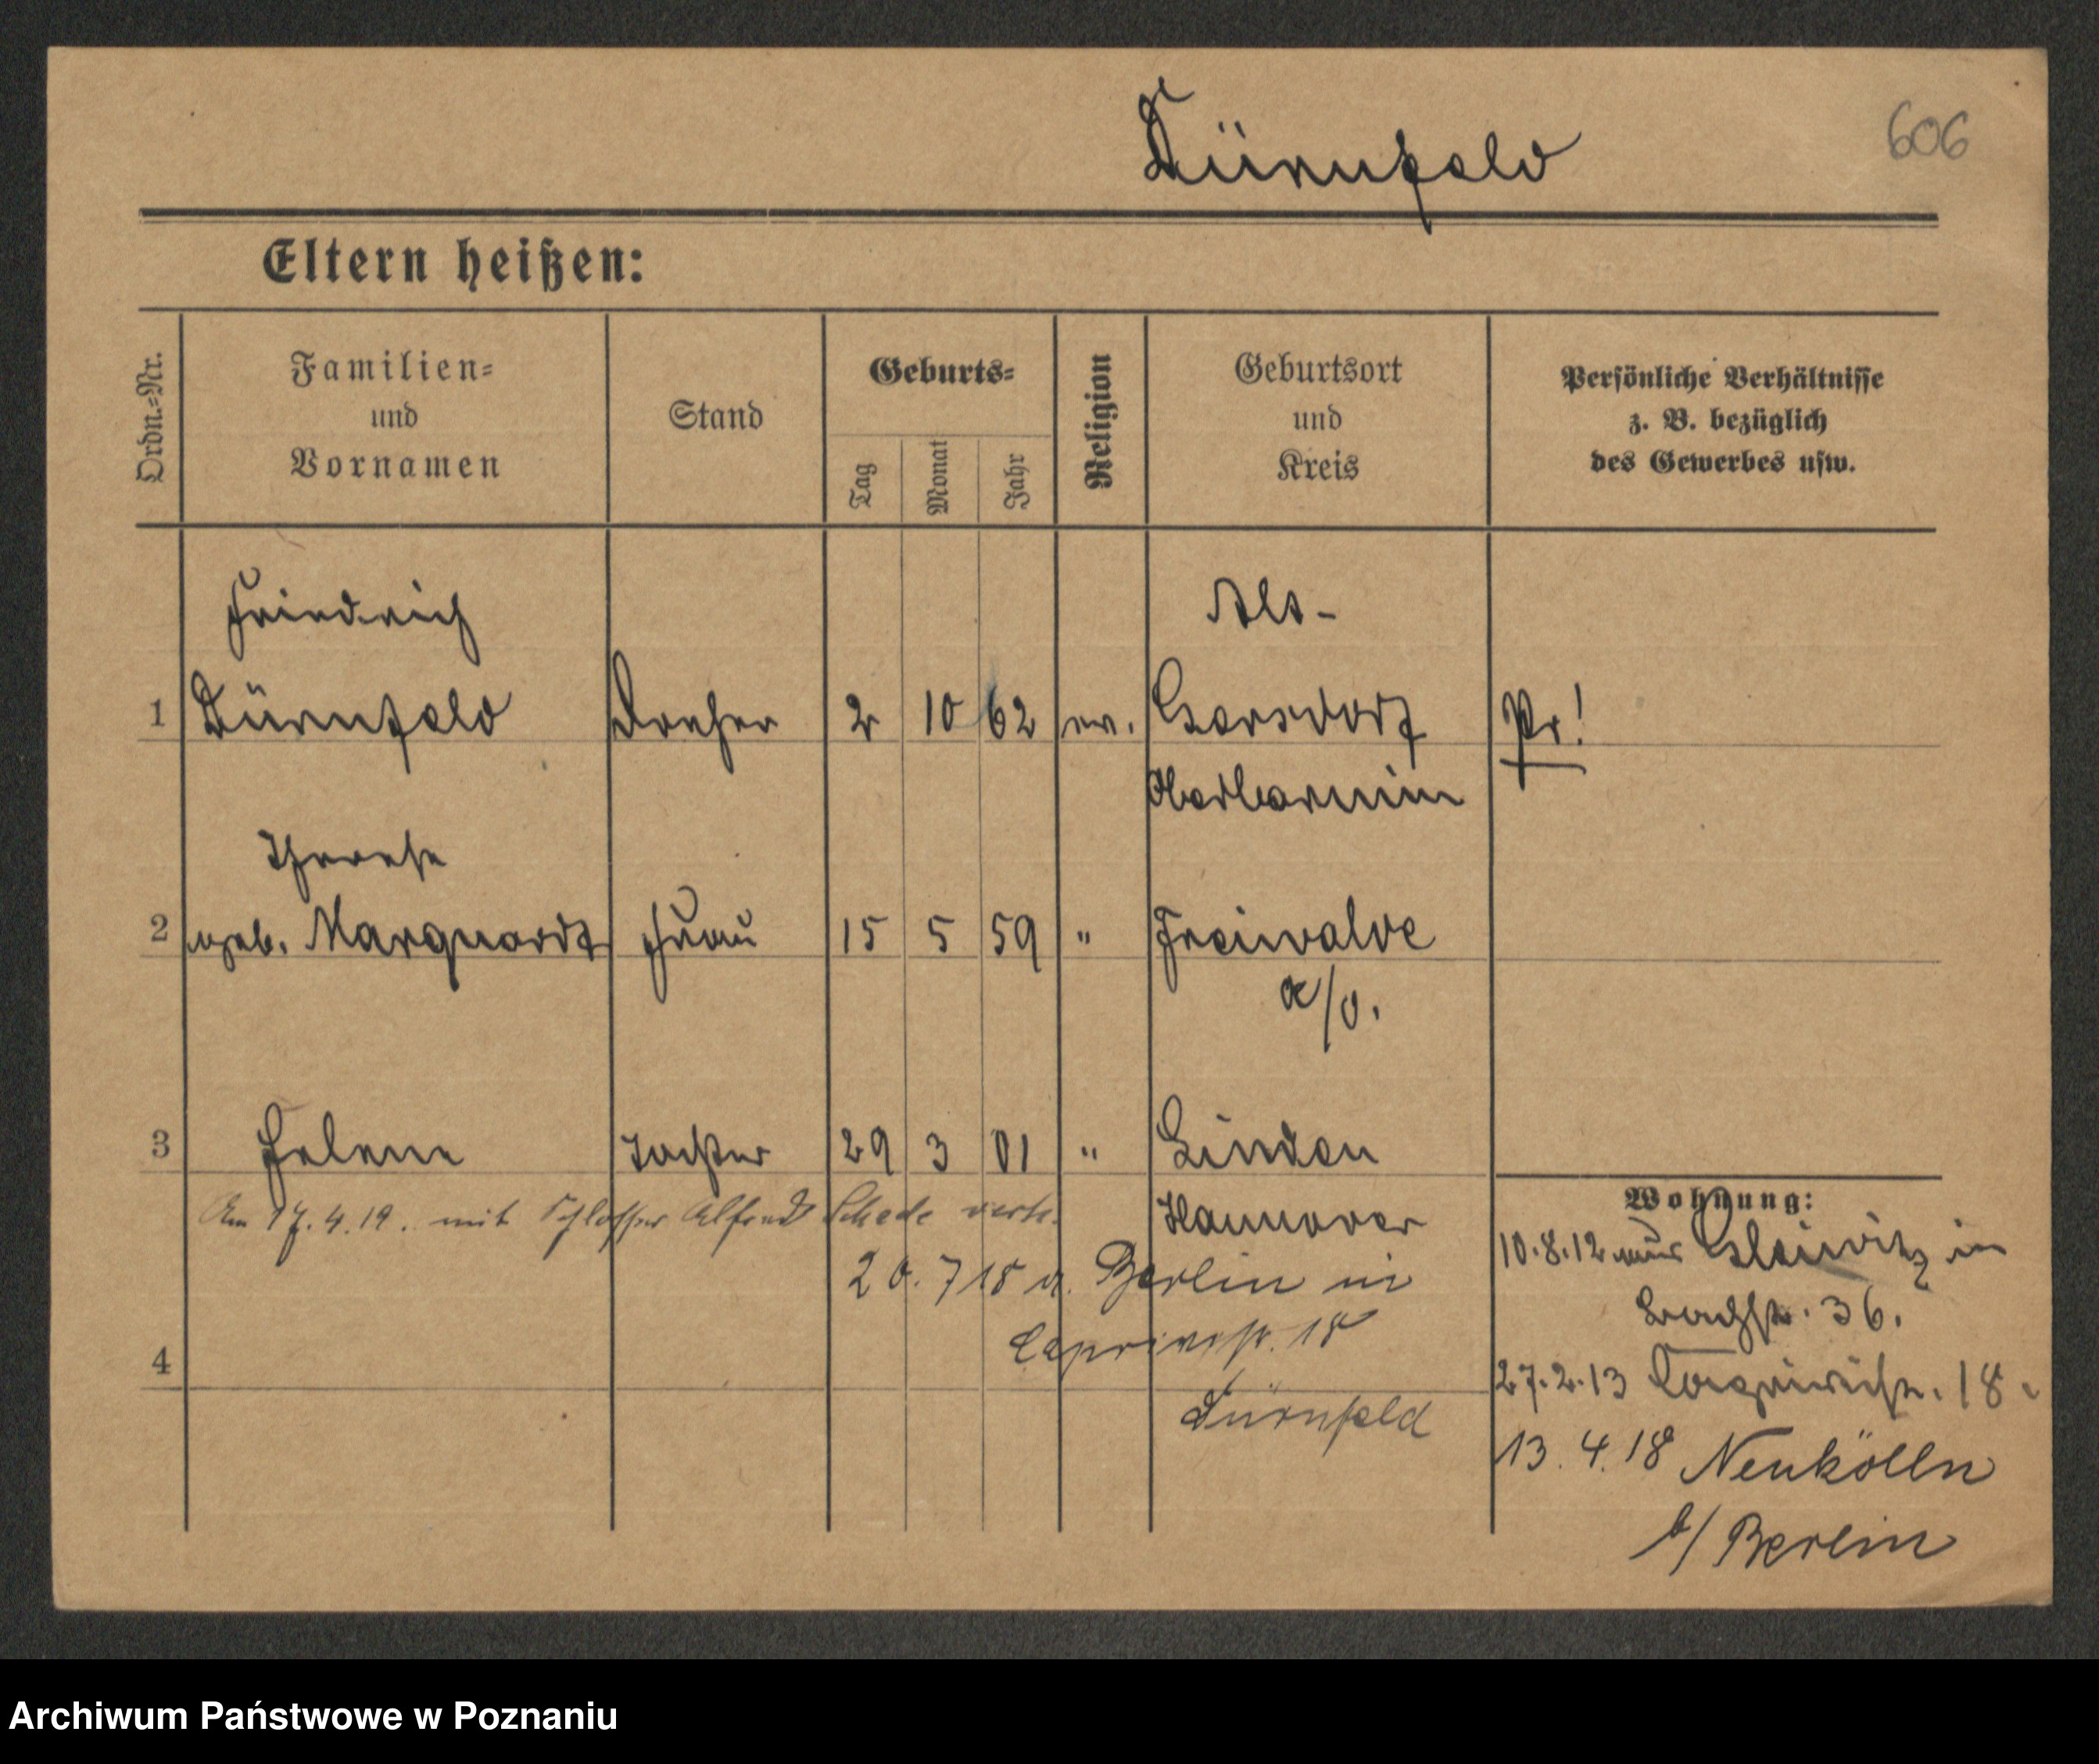 Dürnfeld
606
Eltern heißen:
Ordn.-Nr.
Familien-
und
Vornamen
Stand
Geburts-
Tag
Monat
Jahr
Religion
Geburtsort
und
Kreis
Persönliche Verhältnisse
z. B. bezüglich
des Gewerbes usw.
Friedrich
Alt-
1 Dürnfeld Dreher 2 10 62 ev. Garsdorf Pr!
Oberbarnim
Therese
2 geb. Marquardt Frau 15 5 59 " Freiwalde
a/O.
3 Helene Tochter 29 3 01 " Linden
Wohnung:
Am 17.4.19. mit Schlosser Alfred Schede verh.
Hannover
10.8.12 aus Gleiwitz in
20.7 18 v. Berlin in
Bachstr. 36.
Caprivistr. 18
4
27.2.13 Caprivistr. 18.
Dürnfeld
13.4.18 Neukölln
b/ Berlin
Archiwum Państwowe w Poznaniu